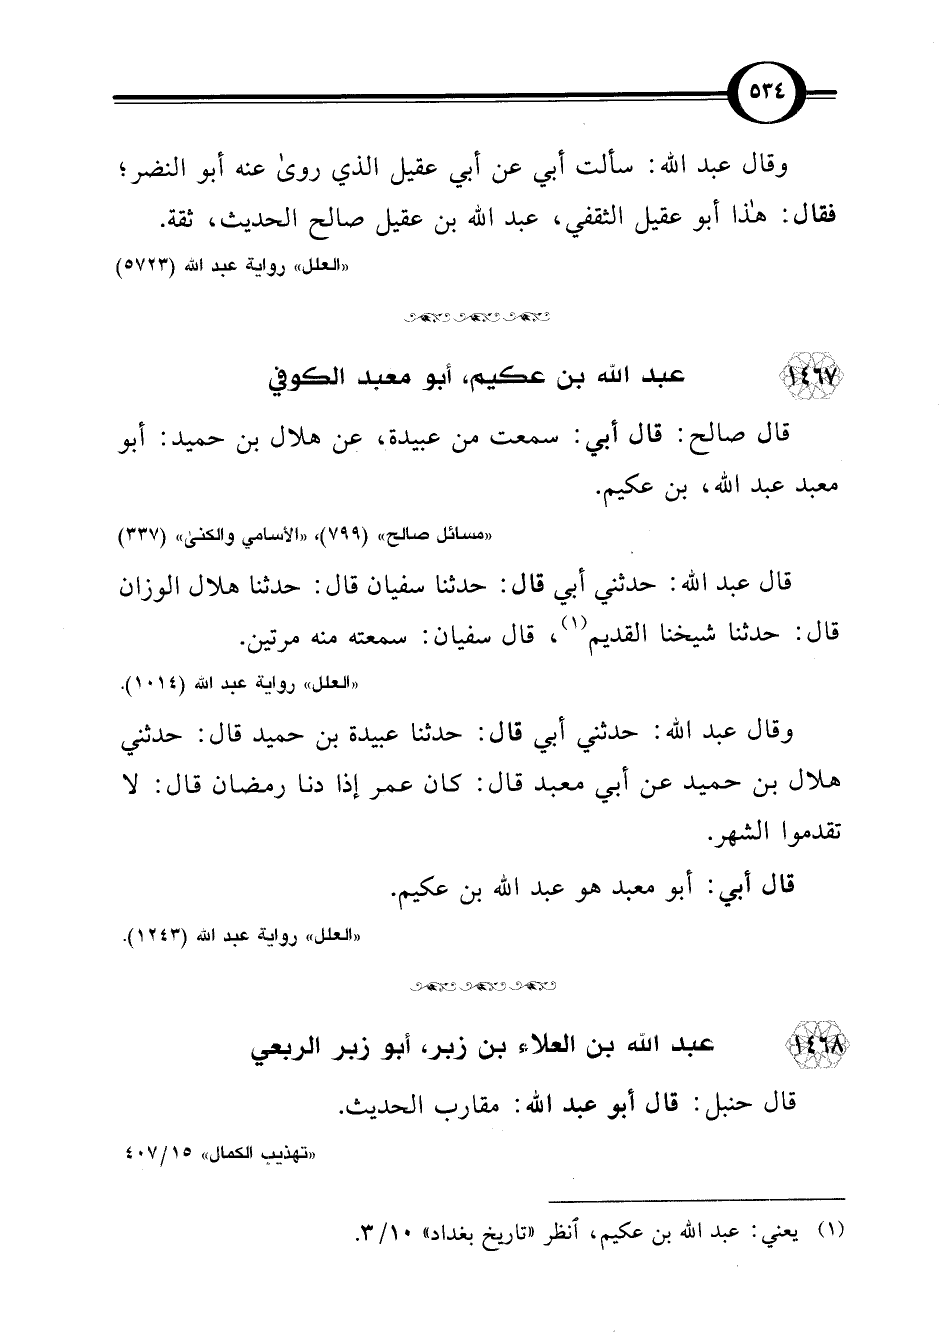 ٥٣٤
وقال عبد الله: سألت أبي عن أبي عقيل الذي روىٰ عنه أبو النضر؛
فقال: هٰذا أبو عقيل الثقفي، عبد الله بن عقيل صالح الحديث، ثقة.
«العلل» رواية عبد الله (٥٧٢٣)
١٤٦٧ عبد الله بن عكيم، أبو معبد الكوفي
قال صالح: قال أبي: سمعت من عبيدة، عن هلال بن حميد: أبو
معبد عبد الله، بن عكيم.
«مسائل صالح» (٧٩٩)، «الأسامي والكنىٰ» (٣٣٧)
قال عبد الله: حدثني أبي قال: حدثنا سفيان قال: حدثنا هلال الوزان
قال: حدثنا شيخنا القديم(١)، قال سفيان: سمعته منه مرتين.
«العلل» رواية عبد الله (١٠١٤).
وقال عبد الله: حدثني أبي قال: حدثنا عبيدة بن حميد قال: حدثني
هلال بن حميد عن أبي معبد قال: كان عمر إذا دنا رمضان قال: لا
تقدموا الشهر.
قال أبي: أبو معبد هو عبد الله بن عكيم.
«العلل» رواية عبد الله (١٢٤٣).
١٤٦٨ عبد الله بن العلاء بن زبر، أبو زبر الربعي
قال حنبل: قال أبو عبد الله: مقارب الحديث.
«تهذيب الكمال» ١٥/ ٤٠٧
(١) يعني: عبد الله بن عكيم، ٱنظر «تاريخ بغداد» ١٠/ ٣.